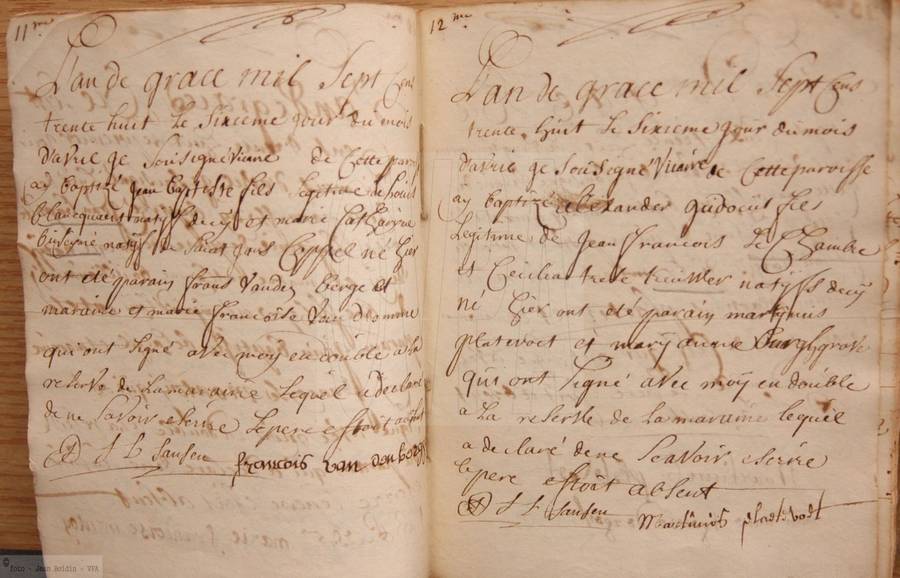 11me
L'an de grace mil Sept Cens
trente huit Le Sixieme jour du mois
d'avril je Sousigné vicaire de Cette paroi
ay baptizé jean baptiste fils legitime de
blancquaert natif d'icy et marie Catharine
natif de Saint jans Cappel né hier
ont été parain frans vanden berge et
maraine et marie francoise Van
qui ont signé avec moy en double a la
reserve de La maraine Lequel a declaré
de ne Savoir ecrire Le pere estoit absent
J L Jansen francois van den berge
12me
L'an de grace mil Sept Cens
trente huit Le Sixieme jour du mois
d'avril je Sousigné Vicaire de Cette paroisse
ay baptizé alexander fils
Legitime de jean francois Le Chambre
et Cecilia natifs d'icy
né hier ont été parain martinus
platevoet et marÿ anne Burghgrave
qui ont signé avec moÿ en double
a La reserve de La maraine lequel
a declaré de ne Scavoir ecrire
le pere estoit absent
J L Jansen Martinus platevoet
© foto - Jean Boidin - VVA